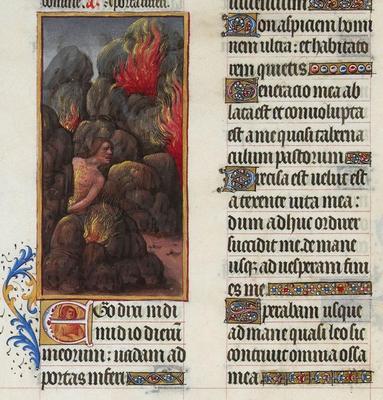 Ego dixi in di
midio dierū
meorum: uadam ad
portas inferi
uiuentium
Non aspiciam homi
nem ultra: et habitato
rem quietis
Generacio mea ab
lata est et conuolupta
est a me quasi taberna
culum pastorum
Precisa est uelut est
a texente uita mea:
dum adhuc ordirer
succidit me. de mane
usqꝫ ad uesperam fini
es me
Sperabam usque
ad mane quasi leo sic
contriuit omnia ossa
mea